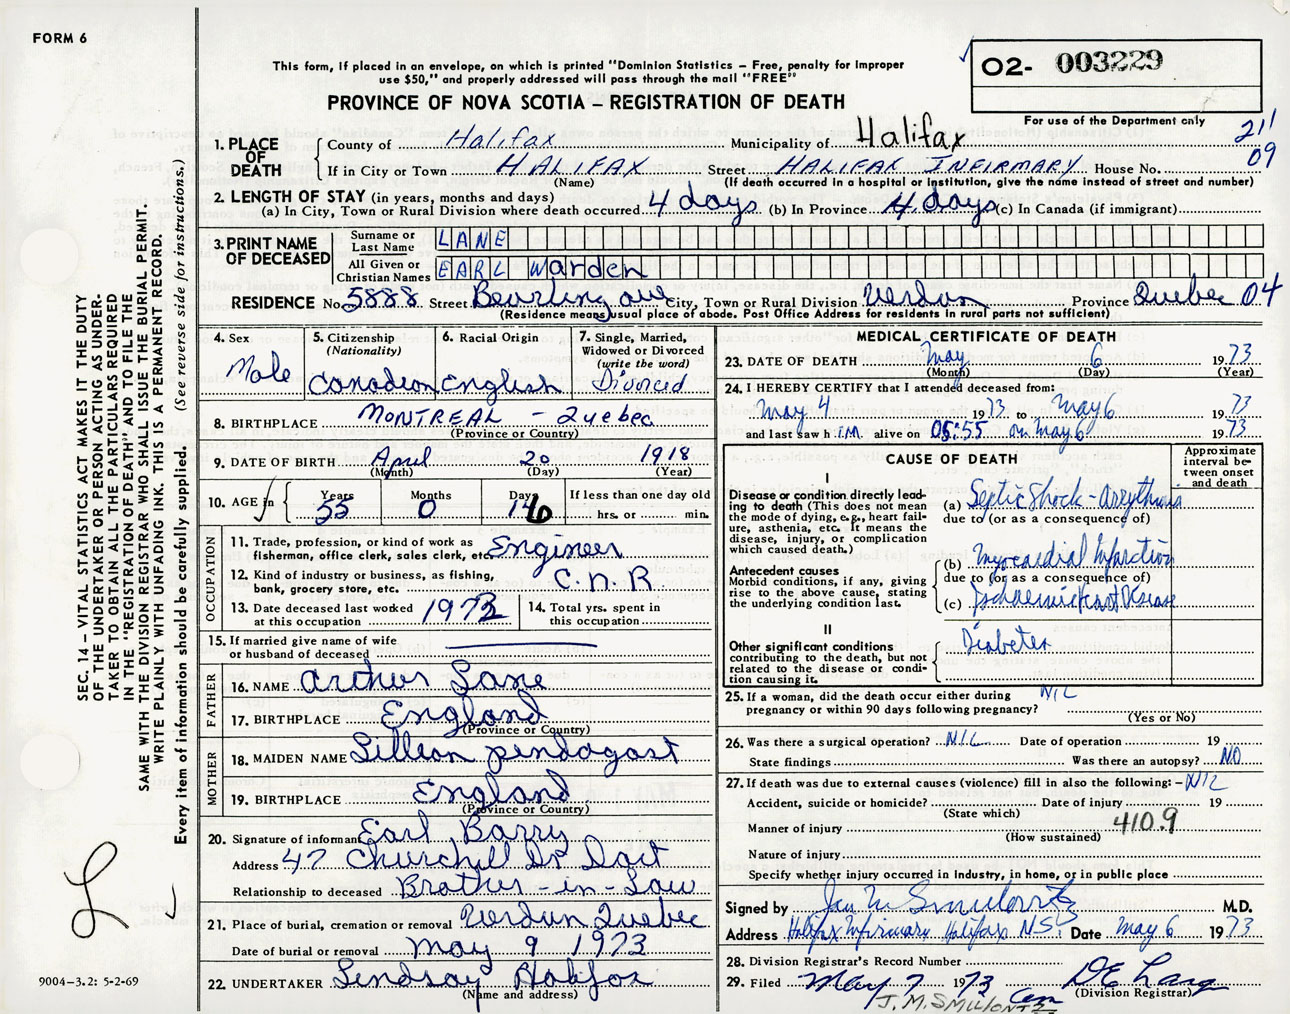 FORM 6
This form, if placed in an envelope, on which is printed "Dominion Statistics – Free, penalty for improper
use $50," and properly addressed will pass through the mail "FREE"
PROVINCE OF NOVA SCOTIA – REGISTRATION OF DEATH
O2- 003229
For use of the Department only
211
09
1. PLACE OF DEATH
County of Halifax Municipality of Halifax
If in City or Town HALIFAX Street HALIFAX INFIRMARY House No.
(Name) (If death occurred in a hospital or institution, give the name instead of street and number)
2. LENGTH OF STAY (in years, months and days)
(a) In City, Town or Rural Division where death occurred 4 days (b) In Province 4 days (c) In Canada (if immigrant)
3. PRINT NAME OF DECEASED
Surname or Last Name LANE
All Given or Christian Names EARL Warden
RESIDENCE No. 5888 Street ave City, Town or Rural Division Verdun Province Quebec 04
(Residence means usual place of abode. Post Office Address for residents in rural parts not sufficient)
4. Sex
Male
5. Citizenship
(Nationality)
Canadian
6. Racial Origin
English
7. Single, Married,
Widowed or Divorced
(write the word)
Divorced
8. BIRTHPLACE MONTREAL – Quebec
(Province or Country)
9. DATE OF BIRTH April 20 1918
(Month) (Day) (Year)
10. AGE in
Years Months Days If less than one day old
55 0 16 hrs. or min.
OCCUPATION
11. Trade, profession, or kind of work as
fisherman, office clerk, sales clerk, etc. Engineer
12. Kind of industry or business, as fishing,
bank, grocery store, etc. C.N.R.
13. Date deceased last worked
at this occupation 1973
14. Total yrs. spent in
this occupation
15. If married give name of wife
or husband of deceased
FATHER
16. NAME Arthur Lane
17. BIRTHPLACE England
(Province or Country)
MOTHER
18. MAIDEN NAME Lillian Pendagast
19. BIRTHPLACE England
(Province or Country)
20. Signature of informant Earl Barry
Address 47 Churchill Dr Dart
Relationship to deceased Brother-in-Law
21. Place of burial, cremation or removal Verdun Quebec
Date of burial or removal May 9 1973
22. UNDERTAKER Lindsay Halifax
(Name and address)
MEDICAL CERTIFICATE OF DEATH
23. DATE OF DEATH May 6 1973
(Month) (Day) (Year)
24. I HEREBY CERTIFY that I attended deceased from:
May 4 1973 to May 6 1973
and last saw h im alive on 05:55 on May 6 1973
CAUSE OF DEATH
Approximate
interval be-
tween onset
and death
I
Disease or condition directly lead-
ing to death (This does not mean
the mode of dying, e.g., heart fail-
ure, asthenia, etc. It means the
disease, injury, or complication
which caused death.)
(a) Septic Shock - Arrythmia
due to (or as a consequence of)
Antecedent causes
Morbid conditions, if any, giving
rise to the above cause, stating
the underlying condition last.
(b) Myocardial Infarction
due to (or as a consequence of)
(c) Ischaemic Heart Disease
II
Other significant conditions
contributing to the death, but not
related to the disease or condi-
tion causing it.
Diabetes
25. If a woman, did the death occur either during
pregnancy or within 90 days following pregnancy? NIL
(Yes or No)
26. Was there a surgical operation? NIL Date of operation 19
State findings Was there an autopsy? NO
27. If death was due to external causes (violence) fill in also the following: – NIL
Accident, suicide or homicide? Date of injury 19
(State which)
Manner of injury 410.9
(How sustained)
Nature of injury
Specify whether injury occurred in industry, in home, or in public place
Signed by M.D.
Address Halifax Infirmary Halifax NS Date May 6 1973
28. Division Registrar's Record Number
29. Filed May 7 1973 D E Lang
(Division Registrar)
J.M.
SEC. 14 – VITAL STATISTICS ACT MAKES IT THE DUTY
OF THE UNDERTAKER OR PERSON ACTING AS UNDER-
TAKER TO OBTAIN ALL THE PARTICULARS REQUIRED
IN THE "REGISTRATION OF DEATH" AND TO FILE THE
SAME WITH THE DIVISION REGISTRAR WHO SHALL ISSUE THE BURIAL PERMIT.
WRITE PLAINLY WITH UNFADING INK. THIS IS A PERMANENT RECORD.
Every item of information should be carefully supplied. (See reverse side for instructions.)
L
9004–3.2: 5-2-69